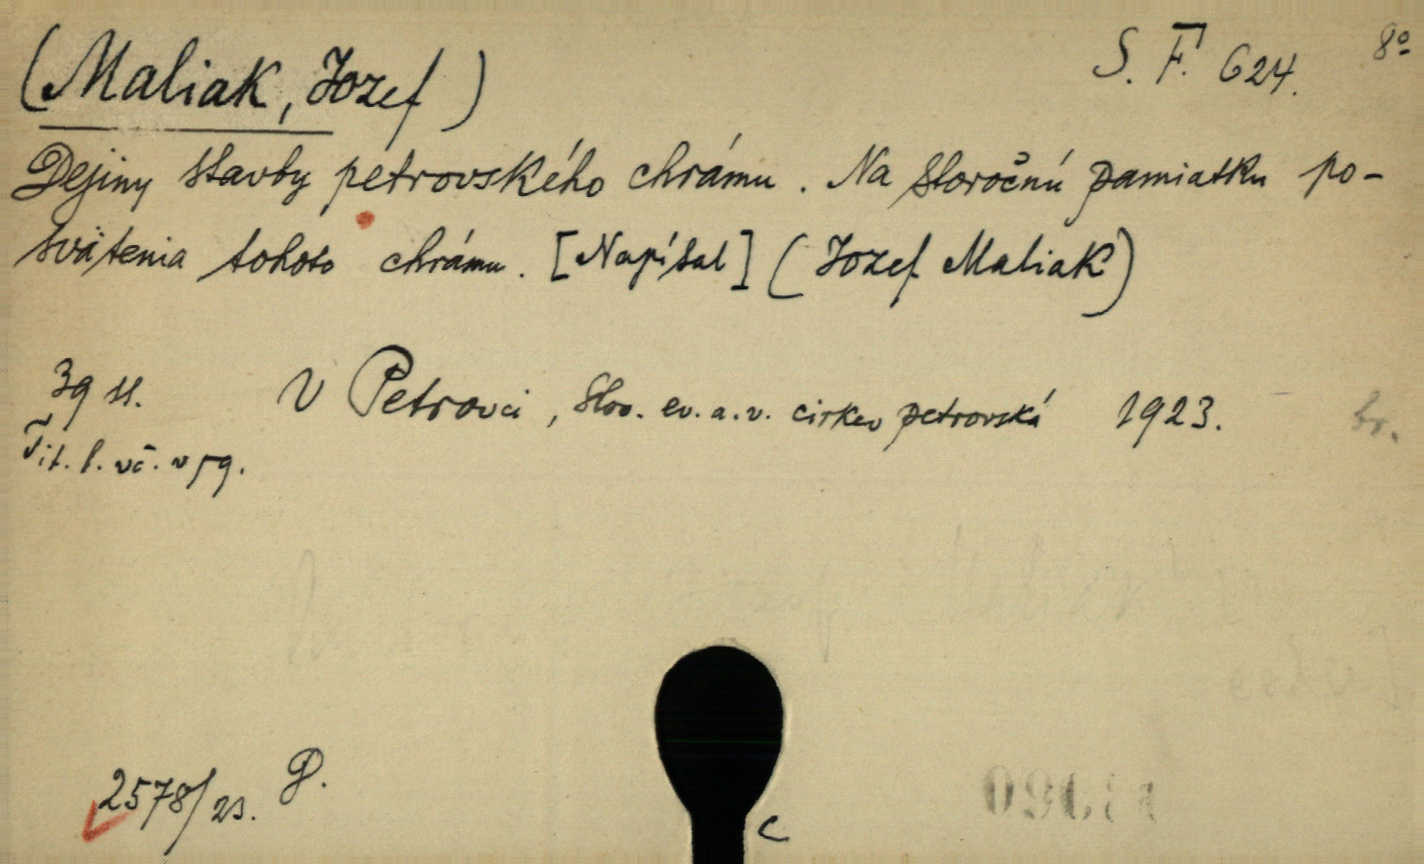 (Maliak, Jozef)
S. F. G 24.
8º
Dejiny stavby petrovského chrámu. Na storočnú pamiatku po-
svätenia tohoto chrámu. [Napísal] (Jozef Maliak)
39 st.
V Petrovci, Slov. ev. a. v. cirkev petrovská 1923.
br.
Tit. l. vč. v pg.
2578/23. P.
c